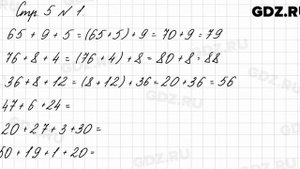 GDZ.RU
Стр. 5 N 1.
65 + 9 + 5 = (65+5) + 9 = 70 + 9 = 79
76 + 8 + 4 = (76 + 4) + 8 = 80 + 8 = 88
36 + 8 + 12 = (8 + 12) + 36 = 20 + 36 = 56
47 + 6 + 24 =
20 + 27 + 3 + 30 =
60 + 19 + 1 + 20 =
GDZ.RU